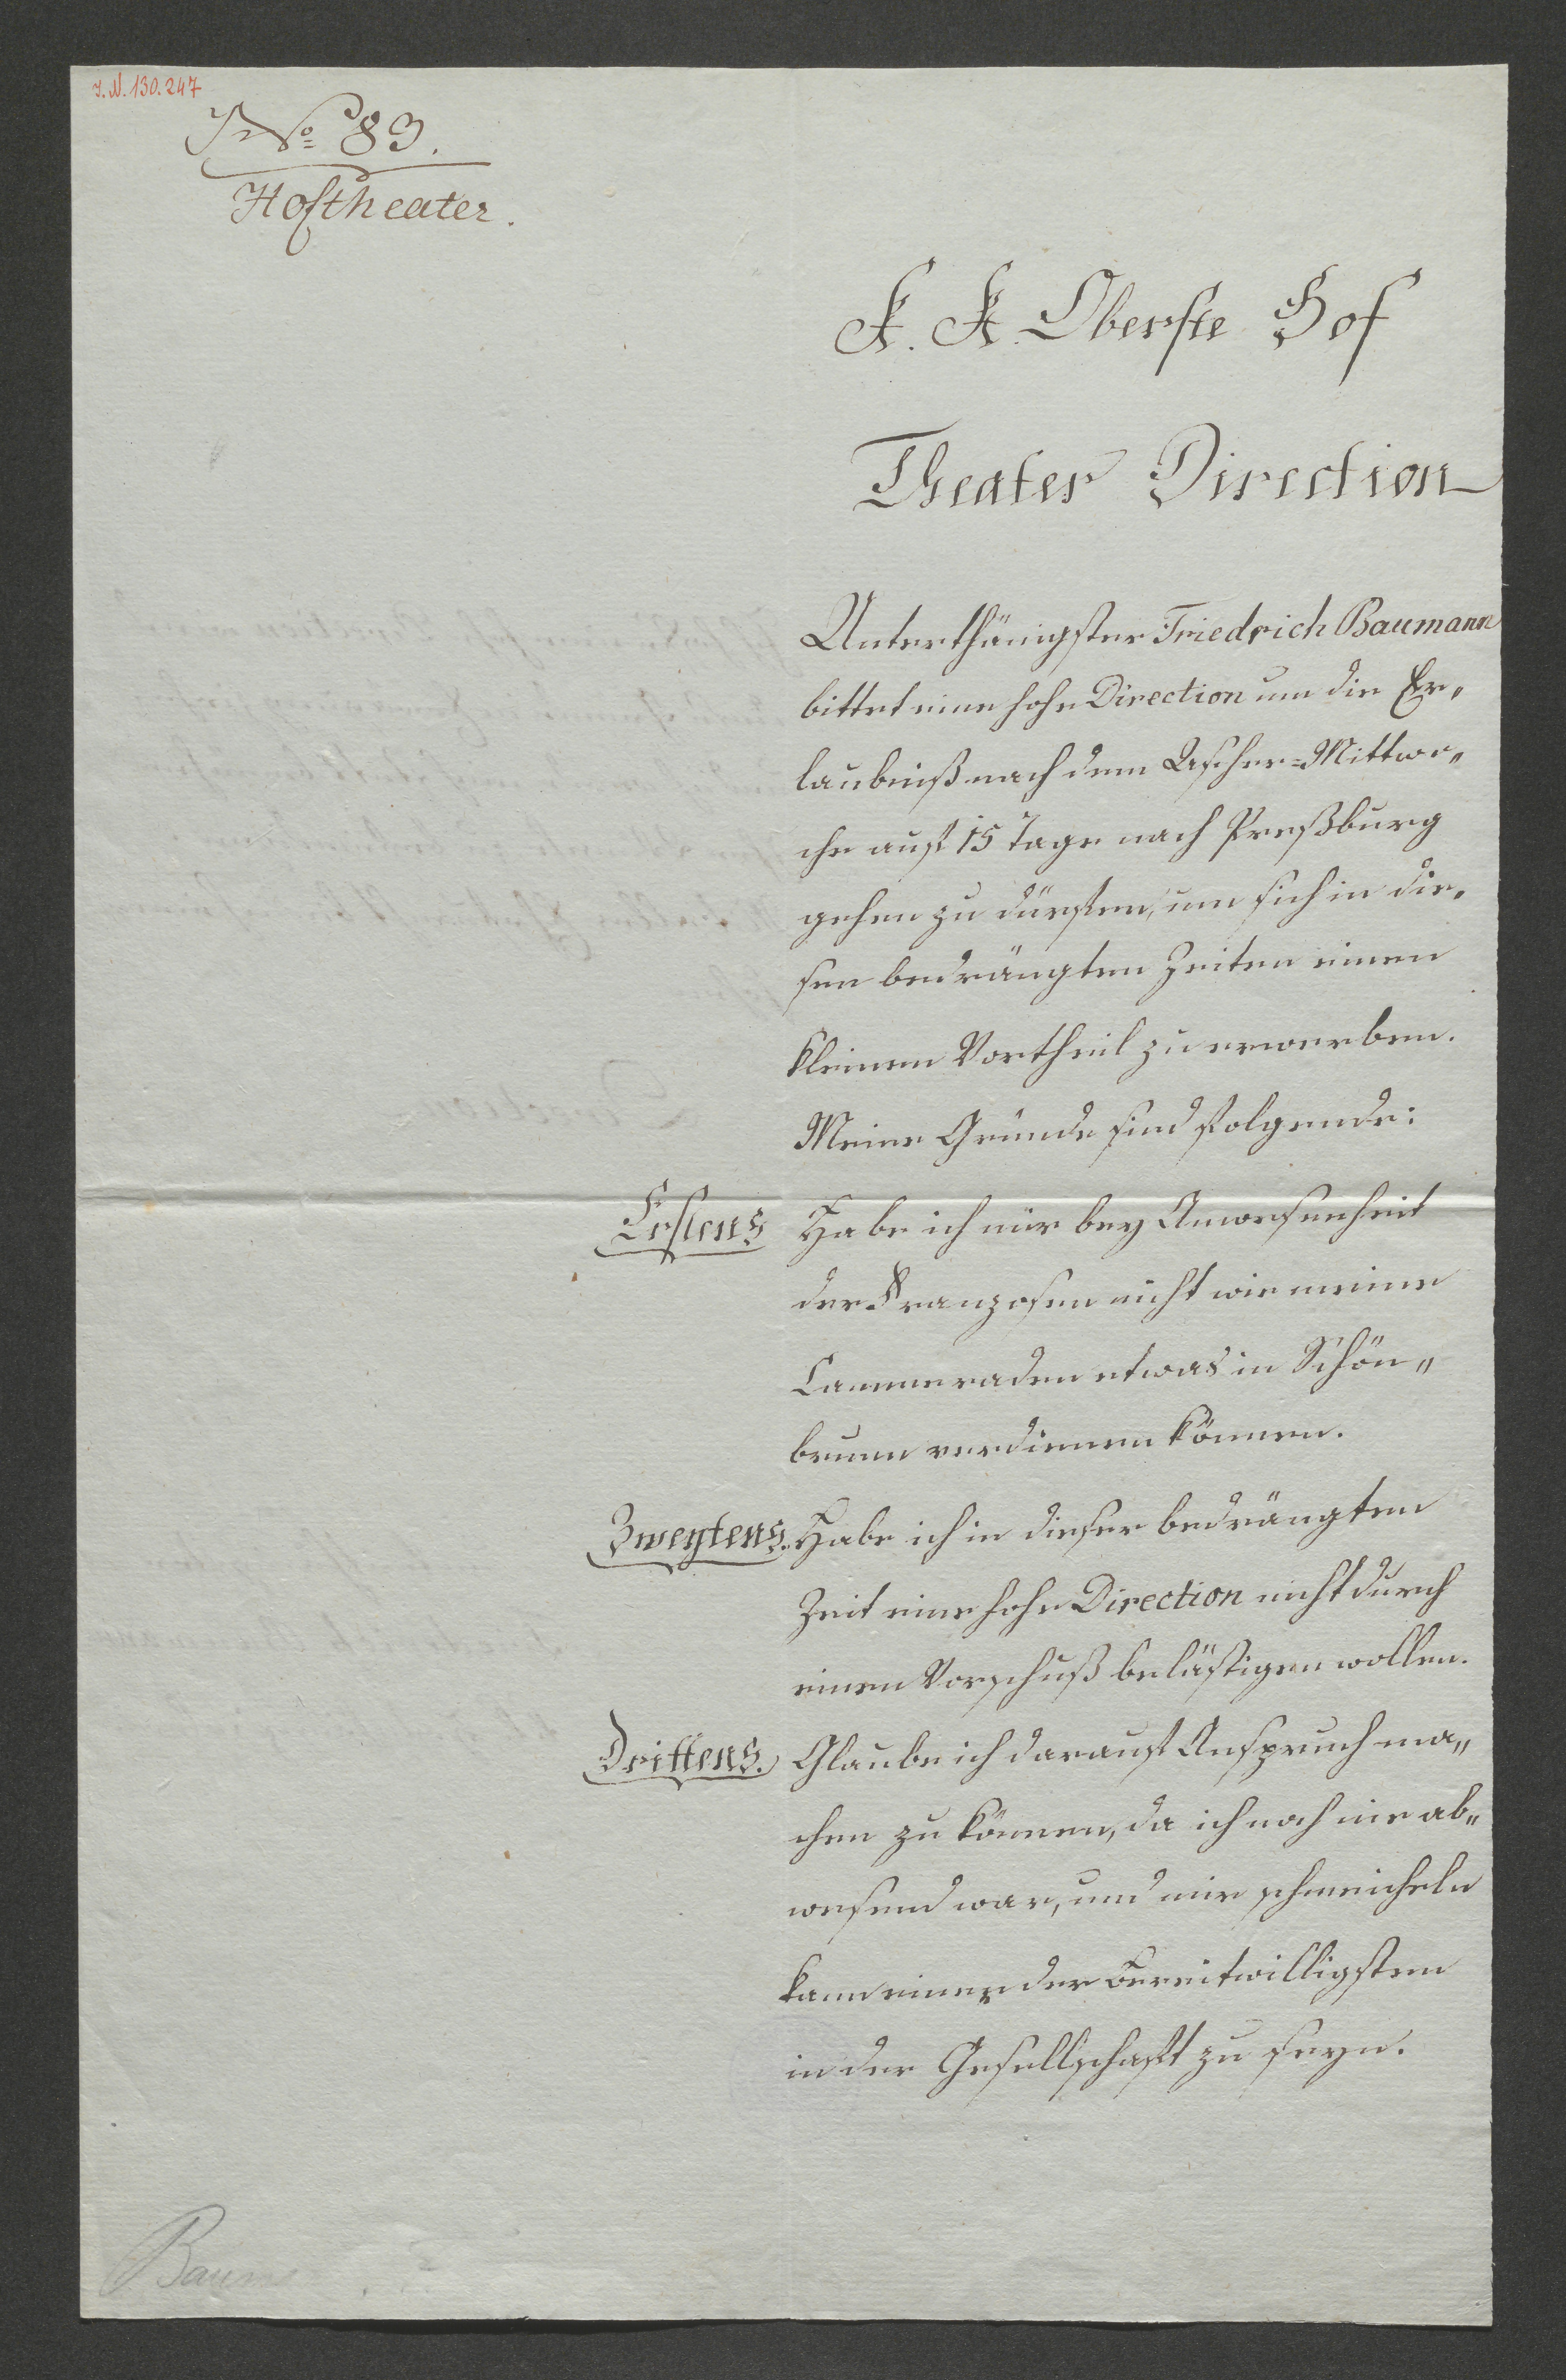 I. N. 130.247
J No 83.
Hoftheater.
K. K. Oberste Hof
Theater Direction
Unterthänigster Friedrich Baumann
bittet eine hohe Direction um die Er„
laubniß nach dem Ascher=Mittwo„
che auf 15 Tage nach Preßburg
gehen zu dürfen, um sich in die„
sen bedrängten Zeiten einen
kleinen Vortheil zu erwerben.
Meine Gründe sind folgende:
Erstens Habe ich mir bey Anwesenheit
der Franzosen nicht wie meine
Cammeraden etwas in Schön„
brunn verdienen können.
Zweytens. Habe ich in dieser bedrängten
Zeit eine hohe Direction nicht durch
einen Vorschuß belästigen wollen.
Drittens. Glaube ich darauf Anspruch ma„
chen zu können, da ich noch nie ab„
wesend war, und mir schmeicheln
kann einer der Bereitwilligsten
in der Gesellschaft zu seyn.
Baum